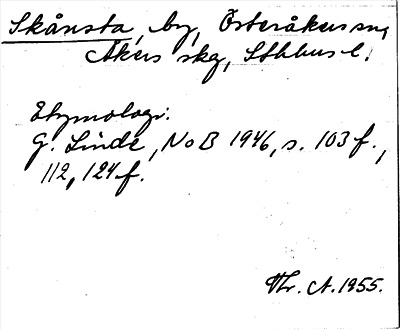 Skånsta, by, Österåkers sn,
Åkers skg, Sthlms l.
Etymologi:
G. Linde, NoB 1946, s. 103 f.,
112, 124 f.
A. 1955.